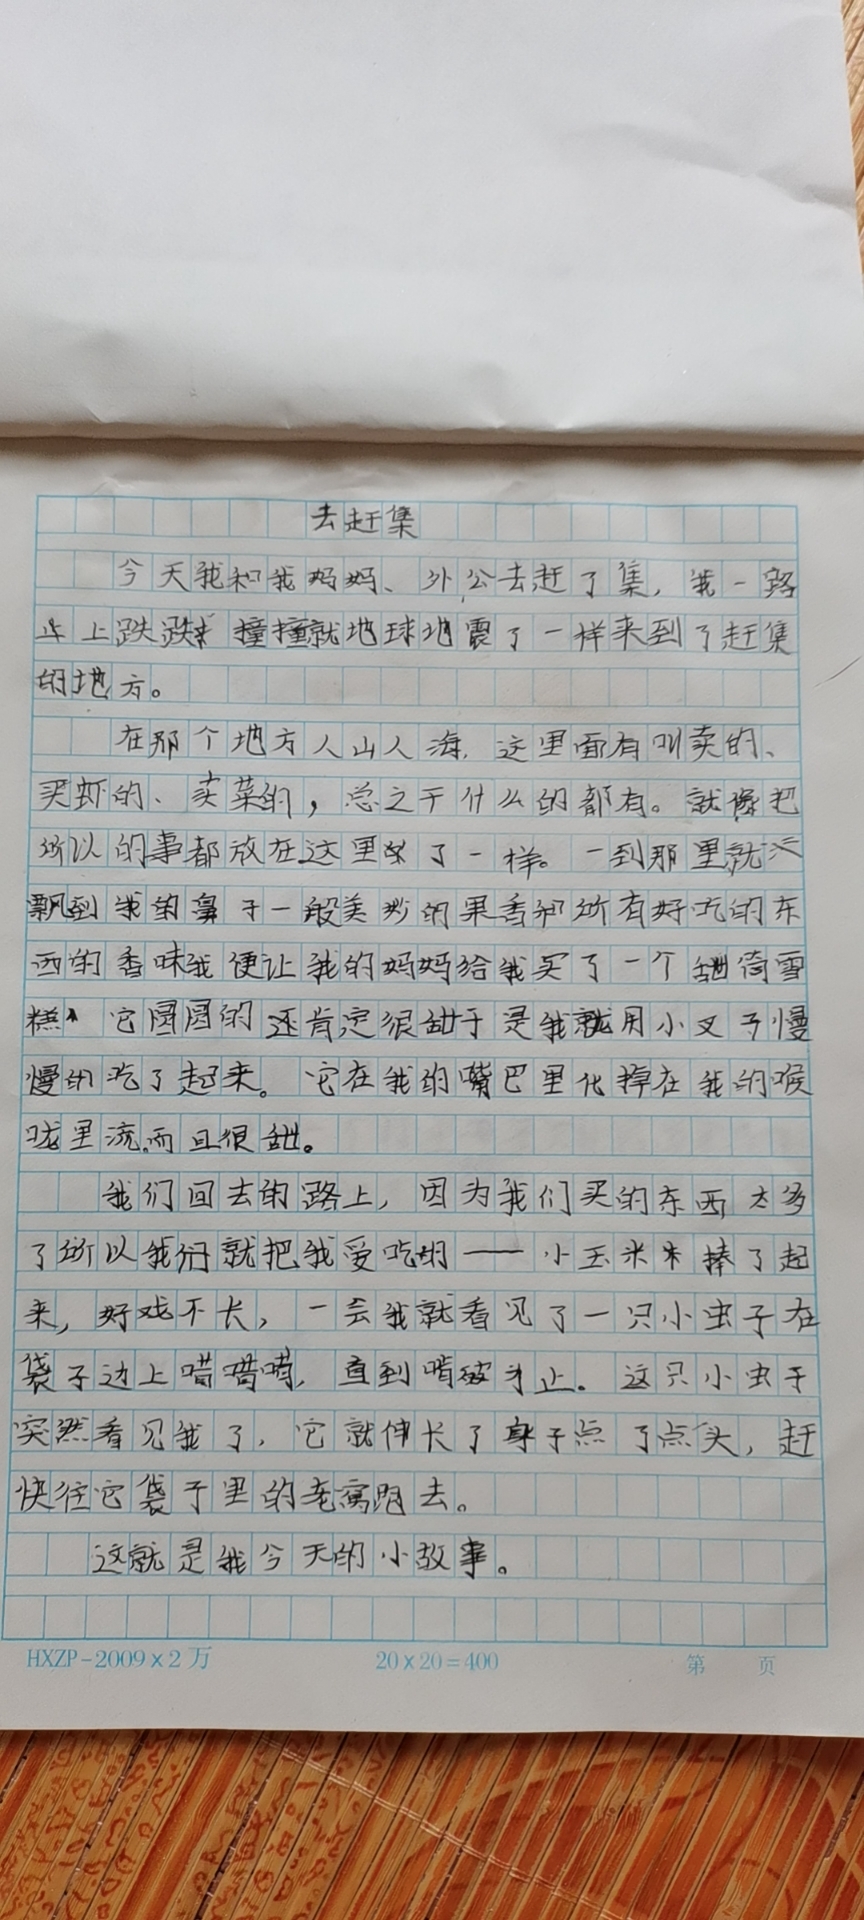 去赶集
今天我和我妈妈、外公去赶了集，我一路
上跌跌撞撞就地球地震了一样来到了赶集
的地方。
在那个地方人山人海，这里面有叫卖的、
买虾的、卖菜的，总之干什么的都有。就像把
所以的事都放在这里了一样。一到那里就
飘到我的鼻子一般美妙的果香和所有好吃的东
西的香味我便让我的妈妈给我买了一个甜筒雪
糕，它圆圆的还肯定很甜于是我就用小叉子慢
慢的吃了起来。它在我的嘴巴里化掉在我的喉
咙里流，而且很甜。
我们回去的路上，因为我们买的东西太多
了所以我们就把我爱吃的——小玉米棒了起
来，好戏不长，一会我就看见了一只小虫子在
袋子边上啃啃啃，直到啃破才止。这只小虫子
突然看见我了，它就伸长了身子点了点头，赶
快往它袋子里的老窝跑去。
这就是我今天的小故事。
HXZP-2009×2万 20×20=400 第 页